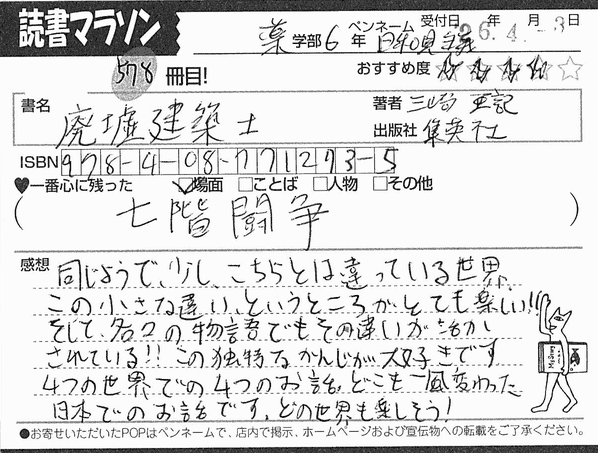 読書マラソン
薬学部6年 ペンネーム 受付日 26.年4.月-3日
578冊目! おすすめ度 ★★★★☆
書名 廃墟建築士
著者 三崎亜記
出版社 集英社
ISBN 978-4-08-771273-5
♥一番心に残った ☑場面 □ことば □人物 □その他
(七階闘争)
感想 同じようで、少し、こちらとは違っている世界、
この小さな違い、というところが、とても楽しい!!
そして、各々の物語でもその違いが活か
されている!! この独特なかんじが大好きです
4つの世界での4つのお話、どこも一風変わった
日本でのお話です、どの世界も楽しそう!
●お寄せいただいたPOPはペンネームで、店内で掲示、ホームページおよび宣伝物への転載をご了承ください。